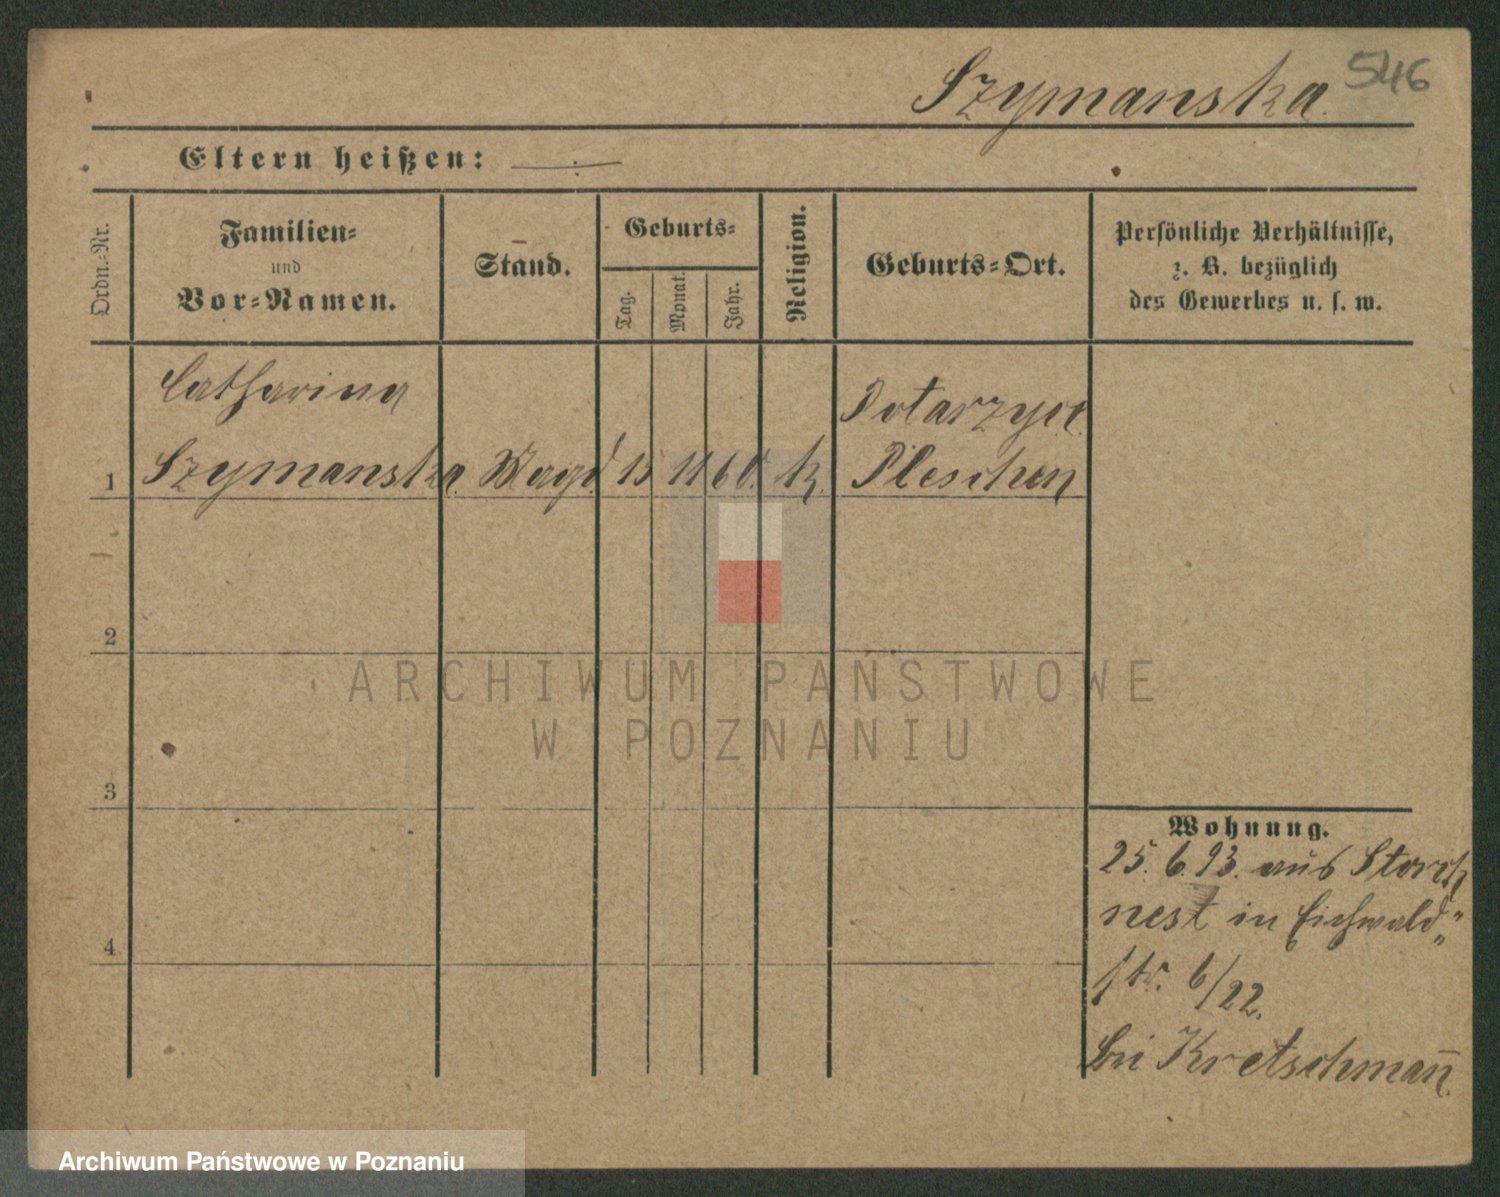 Szymanska 546
Eltern heißen: —
Ordn.-Nr.
Familien-
und
Vor-Namen.
Stand.
Geburts-
Tag.
Monat.
Jahr.
Religion.
Geburts-Ort.
Persönliche Verhältnisse,
z. B. bezüglich
des Gewerbes u. s. w.
Catharina
1 Szymanska. Magd 15 11 60. k. Pleschen
2
3
4
Wohnung.
25. 6. 93. aus Storch
nest in Eichwald„
str. 6/22.
bei Kretschmañ.
ARCHIWUM PAŃSTWOWE
W POZNANIU
Archiwum Państwowe w Poznaniu